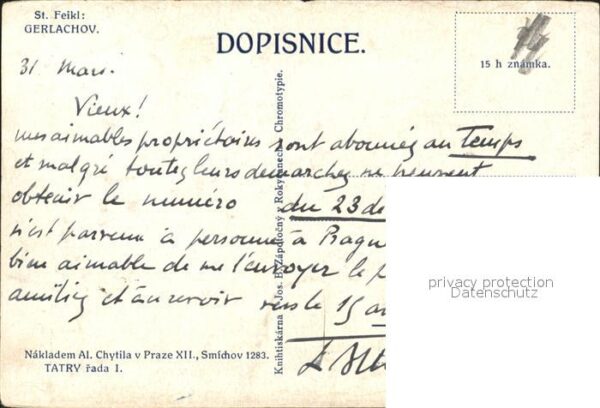 St. Feikl:
GERLACHOV.
DOPISNICE.
15 h známka.
31 Mars.
Vieux!
mes aimables propriétaires sont abonnés au Temps
et malgré toutes leurs démarches ne peuvent
obtenir le numéro du 23 de
n'est parvenu à personne à Pragu
bien aimable de me l'envoyer le p
amitiés et au revoir vers le 15 a
Knihtiskárna Jos. B. Zápotočný Rokycanech. Chromotypie.
privacy protection
Datenschutz
Nákladem Al. Chytila v Praze XII., Smíchov 1283.
TATRY řada I.